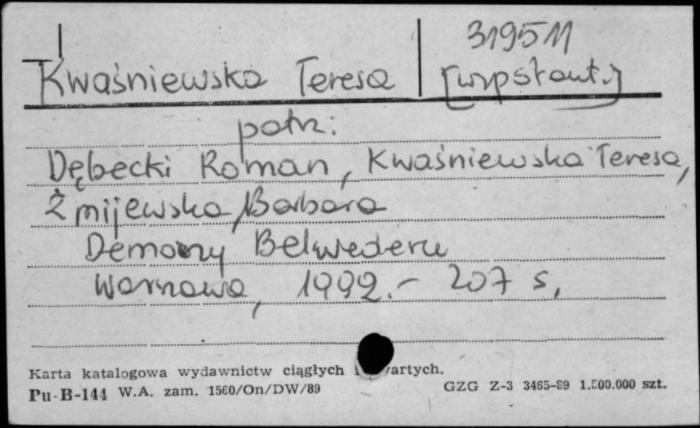 319511
Kwaśniewska Teresa [współaut.]
patrz:
Dębecki Roman, Kwaśniewska Teresa,
Żmijewska Barbara
Demony Belwederu
Warszawa, 1992.- 207 s.
Karta katalogowa wydawnictw ciągłych i zwartych.
Pu-B-144 W.A. zam. 1560/On/DW/89 GZG Z-3 3465-89 1.500.000 szt.